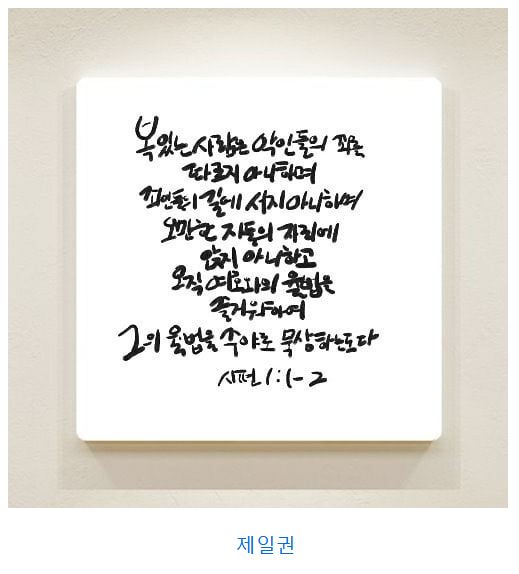 복있는 사람은 악인들의 꾀를
따르지 아니하며
죄인들의 길에 서지 아니하며
오만한 자들의 자리에
앉지 아니하고
오직 여호와의 율법을
즐거워하여
그의 율법을 주야로 묵상하는도다
시편 1:1-2
제일권